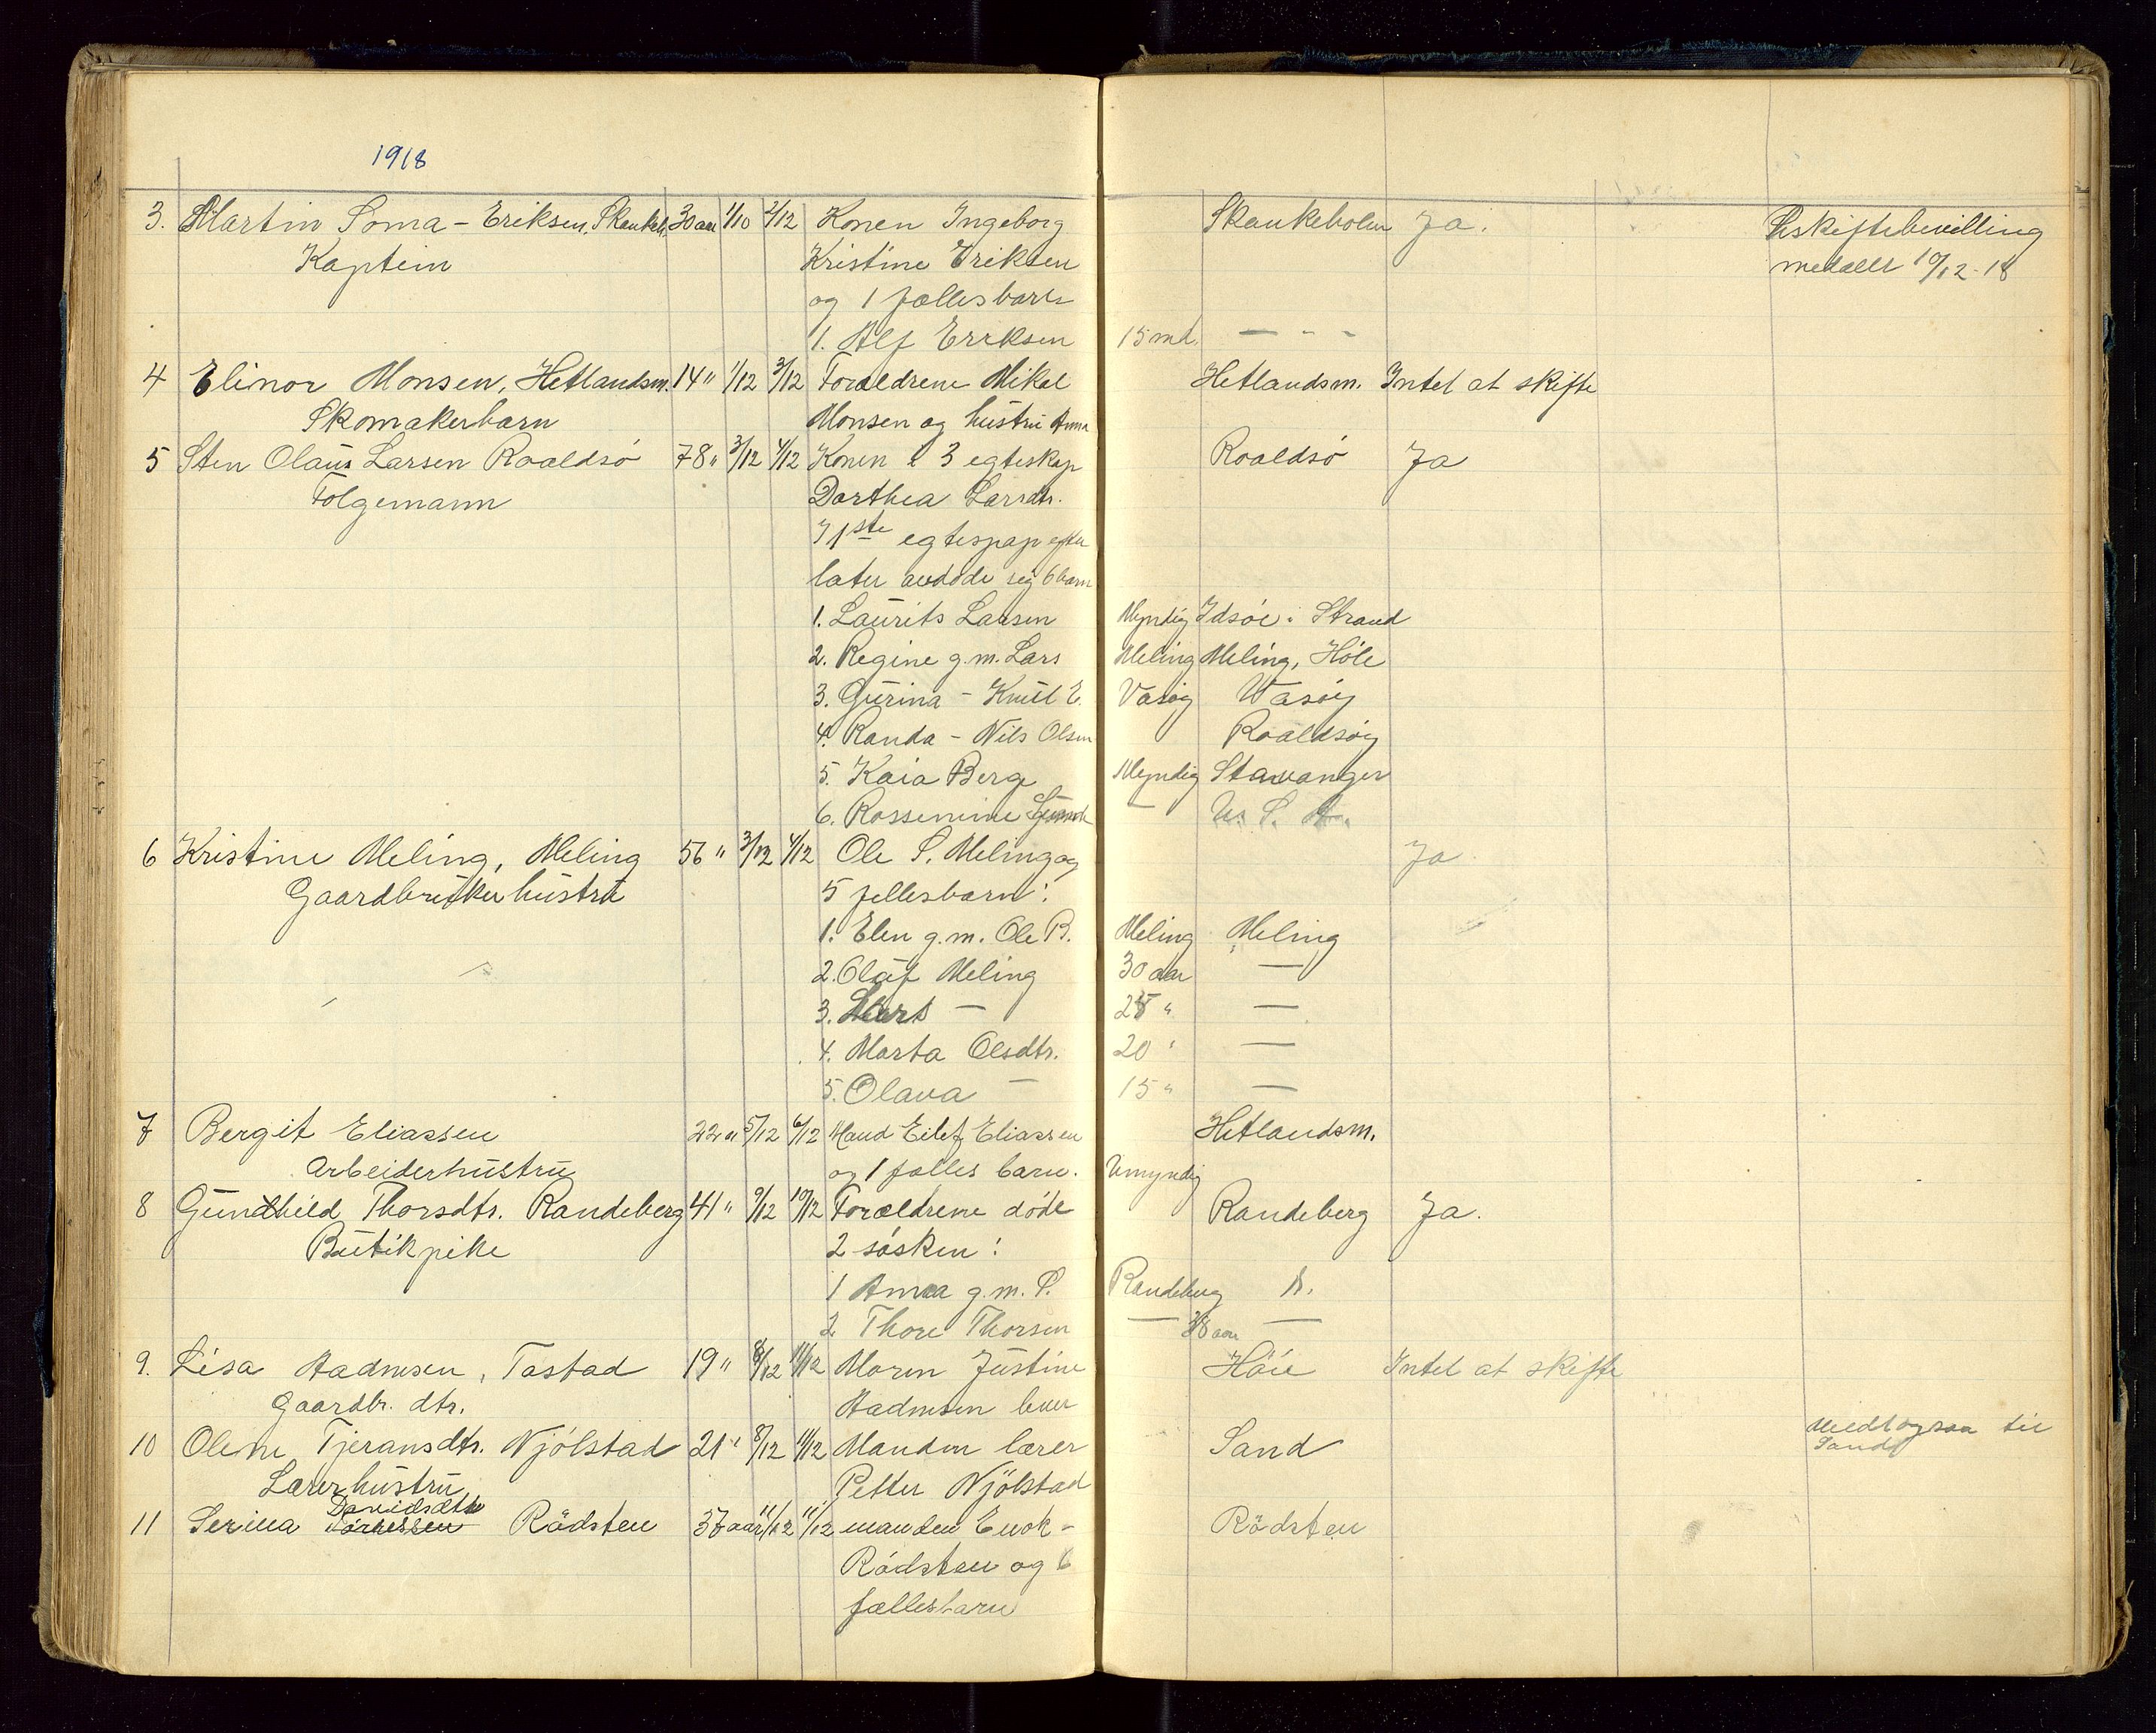 1918
3. Martin Soma - Eriksen, Skankeh. 30 aar 1/10 2/12 Konen Ingeborg Skankeholm Ja. Uskiftebevilling
Kaptein Kristine Eriksen meddelt 10/12-18
og 1 fællesbarn
1. Alf Eriksen 15 md. — - -
4 Elinor Monsen, Hetlandsm. 14 " 1/12 3/12 Forældrene Mikal Hetlandsm. Intet at skifte
Skomakerbarn Monsen og hustru Anna
5 Sten Olaus Larsen Roaldsö 78 " 3/12 4/12 Konen i 3 egteskap Roaldsö Ja
Folgemann Dorthea Larsdtr.
I 1ste egtespap efter
later avdöde sig 6 barn
1. Laurits Larsen Myndig Idsöe i Strand
2. Regine g.m. Lars Meling Meling, Höle
3. Gurina - Knut E. Vasöy Vasöy
4. Randa - Nils Olsen Roaldsöy
5. Kaia Berge Myndig Stavanger
6. Rossemine — U. S. A.
6 Kristine Meling, Meling 56 " 3/12 4/12 Ole S. Meling og Ja
Gaardbruker hustru 5 fellesbarn:
1. Elen g.m. Ole B. Meling Meling
2. Olaf Meling 30 aar —
3. Lars — 25 " —
4. Marta Olsdtr. 20 " —
5. Olava — 15 " —
7 Bergit Eliassen 22 " 5/12 6/12 Mand Eilef Eliassen Hetlandsm.
Arbeiderhustru og 1 fælles barn. Umyndig
8 Gunhild Thorsdtr. Randeberg 41 " 9/12 10/12 Forældrene döde Randeberg Ja.
Butikpike 2 sösken:
1 Anna g.m. S. Randeberg R.
2 Thore Thorsen — 38 aar —
9. Lisa Aadnesen, Tastad 19 " 8/12 11/12 Moren Justine Höie Intet at skifte
Gaardbr. dtr. Aadnesen lever
10 Olene Tjeransdtr. Njölstad 21 " 8/12 11/12 Manden lærer Sand Meddlogsaa til
Lærerhustru Petter Njölstad Sand
Davidsdtr
11 Serina Törressen Rödsten 37 aar 11/12 11/12 manden Enok - Rödsten
Rödsten og 6
fællesbarn